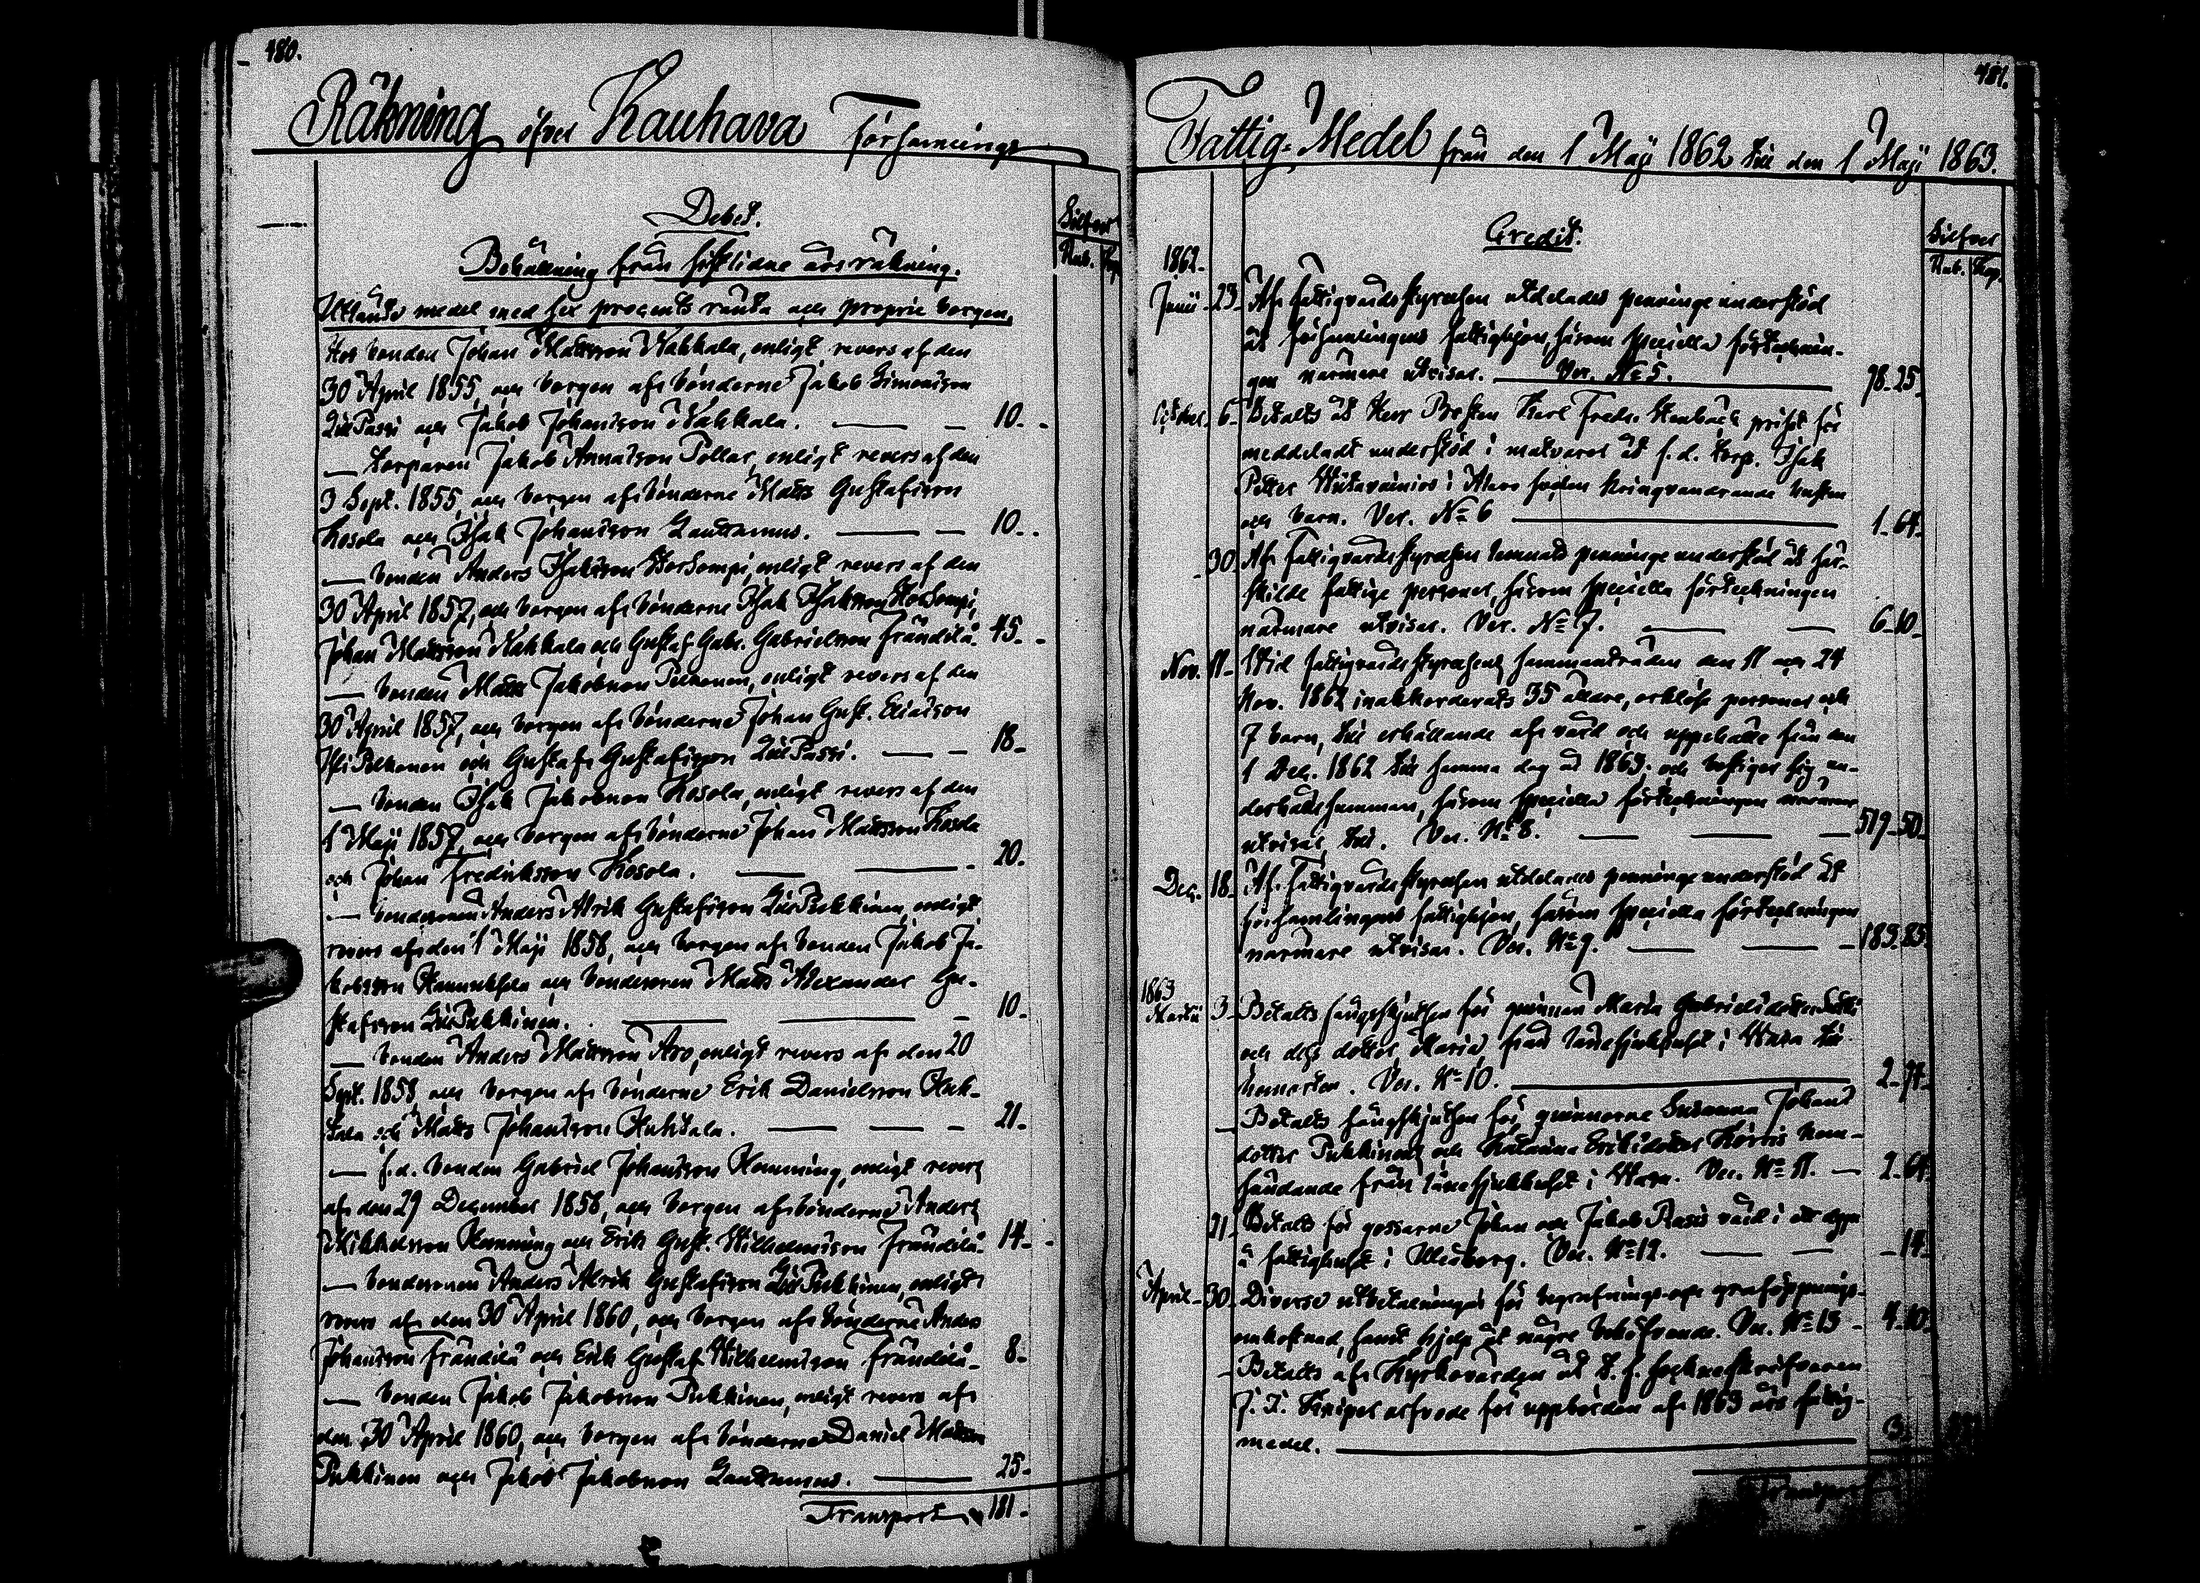 480.
Räkning öfver Kauhava Församlings
Debet.
Silfver
Rub. Kop.
Behållning från sistlidne års räkning.
Utlånte medel med sex procents ränta och proprie borgen.
Hos bonden Johan Mattsson Nahkala, enligt revers af den
30 April 1855, och borgen af bönderne Jakob Simonsson
LillPassi och Jakob Johansson Nahkala. 10.
— torparen Jakob Annaïsson Pollar, enligt revers af den
3 Sept. 1855, och borgen af bönderne Matts Gustafsson
Kosola och Isak Johansson Lauttamus. 10.
— bonden Anders Isaksson enligt revers af den
30 April 1857, och borgen af bönderne Isak Isaksson
Johan Mattsson Nahkala och Gustaf Gabr. Gabrielsson Frändilä. 45.
— bonden Matts Jakobsson Pelkonen, enligt revers af den
30 April 1857, och borgen af bönderne Johan Gust. Eliasson
Pelkonen och Gustaf Gustafsson LillPassi. 18.
— bonden Isak Jakobsson Kosola, enligt revers af den
1 Maji 1857, och borgen af bönderne Johan Mattsson Kosola
och Johan Fredriksson Kosola. 20.
— bondesonen Anders Alrik Gustafsson LillPukkinen, enligt
revers af den 1 Maji 1858, och borgen af bonden Jakob Ja-
kobsson och bondesonen Matts Alexander Gu-
stafsson LillPukkinen. 10.
— bonden Anders Mattsson Aro, enligt revers af den 20
Sept. 1858 och borgen af bönderne Erik Danielsson Huh-
tala och Matts Johansson Huhtala. 21.
— f.d. bonden Gabriel Johansson Hemming, enligt revers
af den 29 December 1858, och borgen af bönderne Anders
Mikkelsson Hemming och Erik Gust. Wilhelmsson Frändilä. 14.
— bondesonen Anders Alrik Gustafsson LillPukkinen, enligt
revers af den 30 April 1860, och borgen af bönderne Anders
Johansson Frändilä och Erik Gustaf Wilhelmsson Frändilä. 8.
— bonden Jakob Jakobsson Pukkinen, enligt revers af
den 30 April 1860, och borgen af bönderne Daniel Mattsson
Pukkinen och Jakob Jakobsson Lauttamus. 25.
Transport 181.
481.
Fattig-Medel från den 1 Maji 1862 till den 1 Maji 1863.
Credit.
Silfver
Rub. Kop.
1862.
Junii 23 Af Fattigvårdsstyrelsen utdelades penninge understöd
åt församlingens fattighjon, såsom speciella förtecknin-
gen närmare utvisar. Ver. No 5. 98. 25.
October 6 Betalts åt Herr Presten Karl Fredr. Stenbäck priset för
meddeladt understöd i matvaror åt f.d. torp. Isak
Petter i Alavo socken kringvandrande hustru
och barn. Ver. No 6 1. 64.
30 Af Fattigvårdsstyrelsen lemnats penninge understöd åt sär-
skilde fattige personer, såsom speciella förteckningen
närmare utvisar. Ver. No 7. 6. 10.
Nov. 11 Vid fattigvårdsstyrelsens sammanträden den 11 och 24
Nov. 1862 inackorderats 35 äldre, orklöse personer och
7 barn, till erhållande af vård och uppehälle från den
1 Dec. 1862 till samma dag år 1863, och bestiger sig un-
derhållssumman, såsom speciella förteckningen närmare
utvisar, till. Ver. No 8. 519. 50.
Dec. 18 Af Fattigvårdsstyrelsen utdelades penninge understöd åt
församlingens fattighjon, såsom speciella förteckningen
närmare utvisar. Ver. No 9. 183. 85.
1863
Martii 3 Betalts fångskjutsen för qvinnan Maria Gabrielsdotter
och dess dotter Maria, från länesjukhuset i Wasa till
hemorten. Ver. No 10. 2. 74.
— Betalts fångskjutsen för qvinnorne Susanna Johans
dotter Pukkinen och Katarina Eriksdotter hem-
sändande från länesjukhuset i Wasa. Ver. No 11. 2. 64.
21 Betalts för gossarne Johan och Jakob Rasis vård i ett dygn
å fattighuset i Uleåborg. Ver. No 12. 14.
April 30 Diverse utbetalningar för begrafnings- och graföppnings-
omkostnad, samt hjelp åt några behöfvande. Ver. No 13 4. 10.
— Betalts af Kyrkovärden åt t.f. Sockneskrifvaren
J. I. arfvode för uppbörden af 1863 års fattig-
medel. 3.
Transport